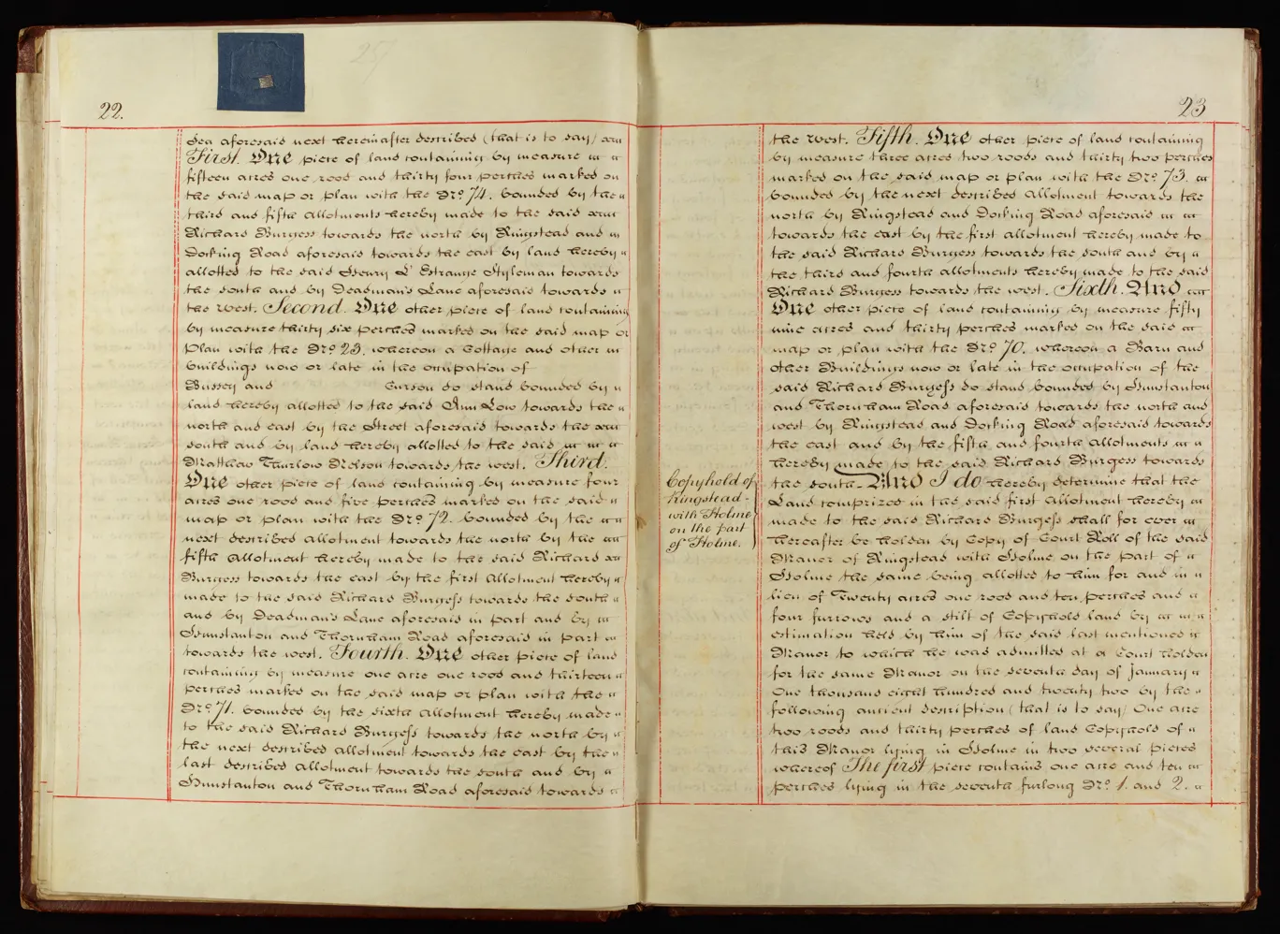 22.
25
Sea aforesaid next hereinafter described (that is to say)
First. One piece of land containing by measure
fifteen acres one rood and thirty four perches marked on
the said map or plan with the No. 74. bounded by the
third and fifth allotments hereby made to the said
Richard Burgess towards the north by Ringstead and
Docking Road aforesaid towards the east by land hereby
allotted to the said Henry L' Estrange Styleman towards
the south and by Deadman's Lane aforesaid towards
the west. Second. One other piece of land containing
by measure thirty six perches marked on the said map or
Plan with the No. 23. whereon a Cottage and other
buildings now or late in the occupation of
Bussey and Curson do stand bounded by
land hereby allotted to the said Ann Low towards the
north and east by the Street aforesaid towards the
south and by land hereby allotted to the said
Matthew Thurlow Nelson towards the west. Third.
One other piece of land containing by measure four
acres one rood and five perches marked on the said
map or plan with the No. 72. bounded by the
next described allotment towards the north by the
fifth Allotment hereby made to the said Richard
Burgess towards the east by the first Allotment hereby
made to the said Richard Burgess towards the south
and by Deadman's Lane aforesaid in part and by
Hunstanton and Thornham Road aforesaid in part
towards the west. Fourth. One other piece of land
containing by measure one acre one rood and thirteen
perches marked on the said map or plan with the
No. 71. bounded by the sixth Allotment hereby made
to the said Richard Burgess towards the north by
the next described allotment towards the east by the
last described allotment towards the south and by
Hunstanton and Thornham Road aforesaid towards
23
the west. Fifth. One other piece of land containing
by measure three acres two roods and thirty two perches
marked on the said map or plan with the No. 73.
bounded by the next described Allotment towards the
north by Ringstead and Docking Road aforesaid
towards the east by the first allotment hereby made to
the said Richard Burgess towards the south and by
the third and fourth allotments hereby made to the said
Richard Burgess towards the west. Sixth. And
One other piece of land containing by measure fifty
nine acres and thirty perches marked on the said
map or plan with the No. 70. whereon a Barn and
other Buildings now or late in the occupation of the
said Richard Burgess do stand bounded by Hunstanton
and Thornham Road aforesaid towards the north and
west by Ringstead and Docking Road aforesaid towards
the east and by the fifth and fourth Allotments
hereby made to the said Richard Burgess towards
the south. And I do hereby determine that the
Land comprized in the said first Allotment hereby
made to the said Richard Burgess shall for ever
hereafter be holden by Copy of Court Roll of the said
Manor of Ringstead with Holme on the part of
Holme the same being allotted to him for and in
lieu of Twenty acres one rood and ten perches and
four furrows and a stilt of Copyhold land by
estimation held by him of the said last mentioned
Manor to which he was admitted at a Court holden
for the same Manor on the seventh day of January
One thousand eight hundred and twenty two by the
following ancient description (that is to say) One acre
two roods and thirty perches of land Copyhold of
this Manor lying in Holme in two several pieces
whereof The first piece contains one acre and ten
perches lying in the seventh furlong No. 1. and 2.
Copyhold of
Ringstead
with Holme
on the part
of Holme.